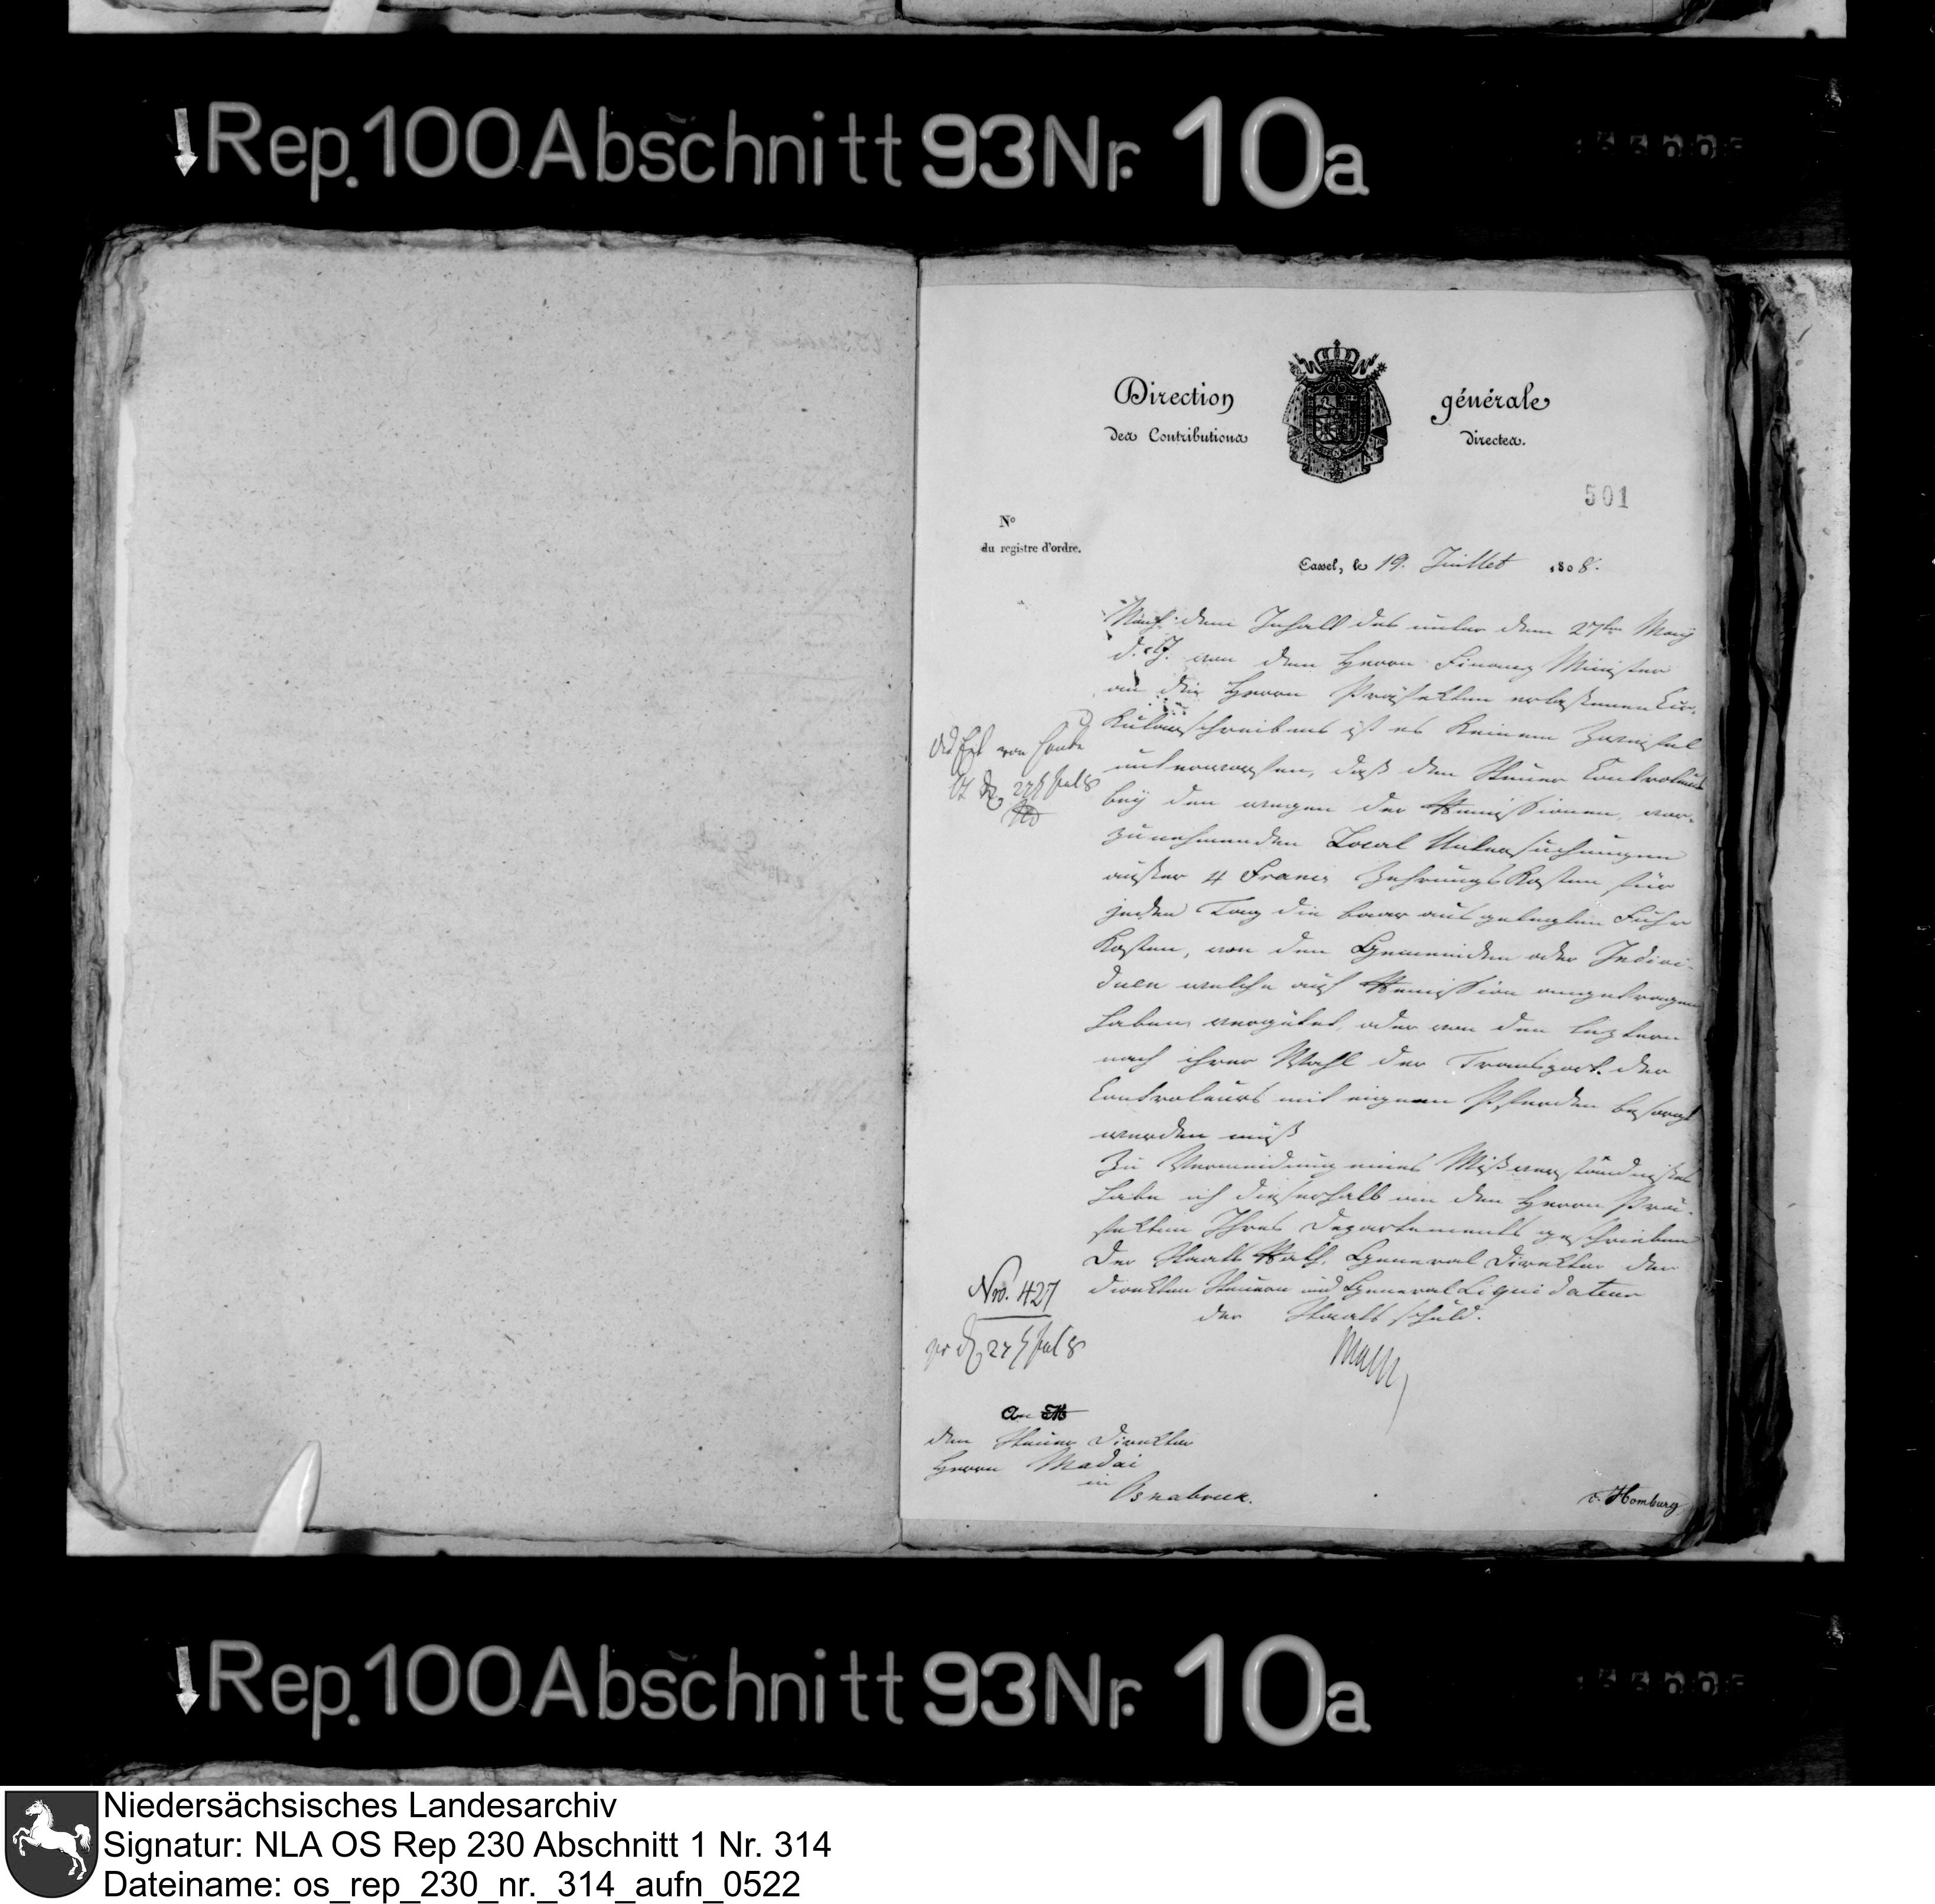 Rep. 100 Abschnitt 93 Nr. 10a
Direction générale
des Contributions directes.
501
N°
du registre d'ordre.
Cassel, le 19. Juillet 1808.
Nach dem Inhalt des unter dem 27ten May
d. J. von dem Herrn Finanz Minister
an die Herrn Präfekten erlassenen Cir-
kularschreibens ist es keinem Zweifel
unterworfen, daß den Steuer Controleurs
bey den wegen der Remissionen vor-
zunehmenden Local Untersuchungen
außer 4 Francs Zehrungs Kosten für
jeden Tag die baar ausgelegten Fuhr
Kosten, von den Gemeinden oder Indivi-
duen welche auf Remission angetragen
haben, vergütet, oder von den leztern
nach ihrer Wahl der Transport der
Controleurs mit eigenen Pferden besorgt
werden muß
Zu Vermeidung eines Mißverständnißes
habe ich dieserhalb an den Herrn Prä-
fekten Ihres Departements geschrieben
Der Staats Rath, General Direktor der
direkten Steuern und General Liquidateur
der Staats schuld.
Nro. 427
An
den Steuer Direktor
Herrn Madai
in
Osnabruck.
v. Homburg
Rep. 100 Abschnitt 93 Nr. 10a
Niedersächsisches Landesarchiv
Signatur: NLA OS Rep 230 Abschnitt 1 Nr. 314
Dateiname: os_rep_230_nr._314_aufn_0522